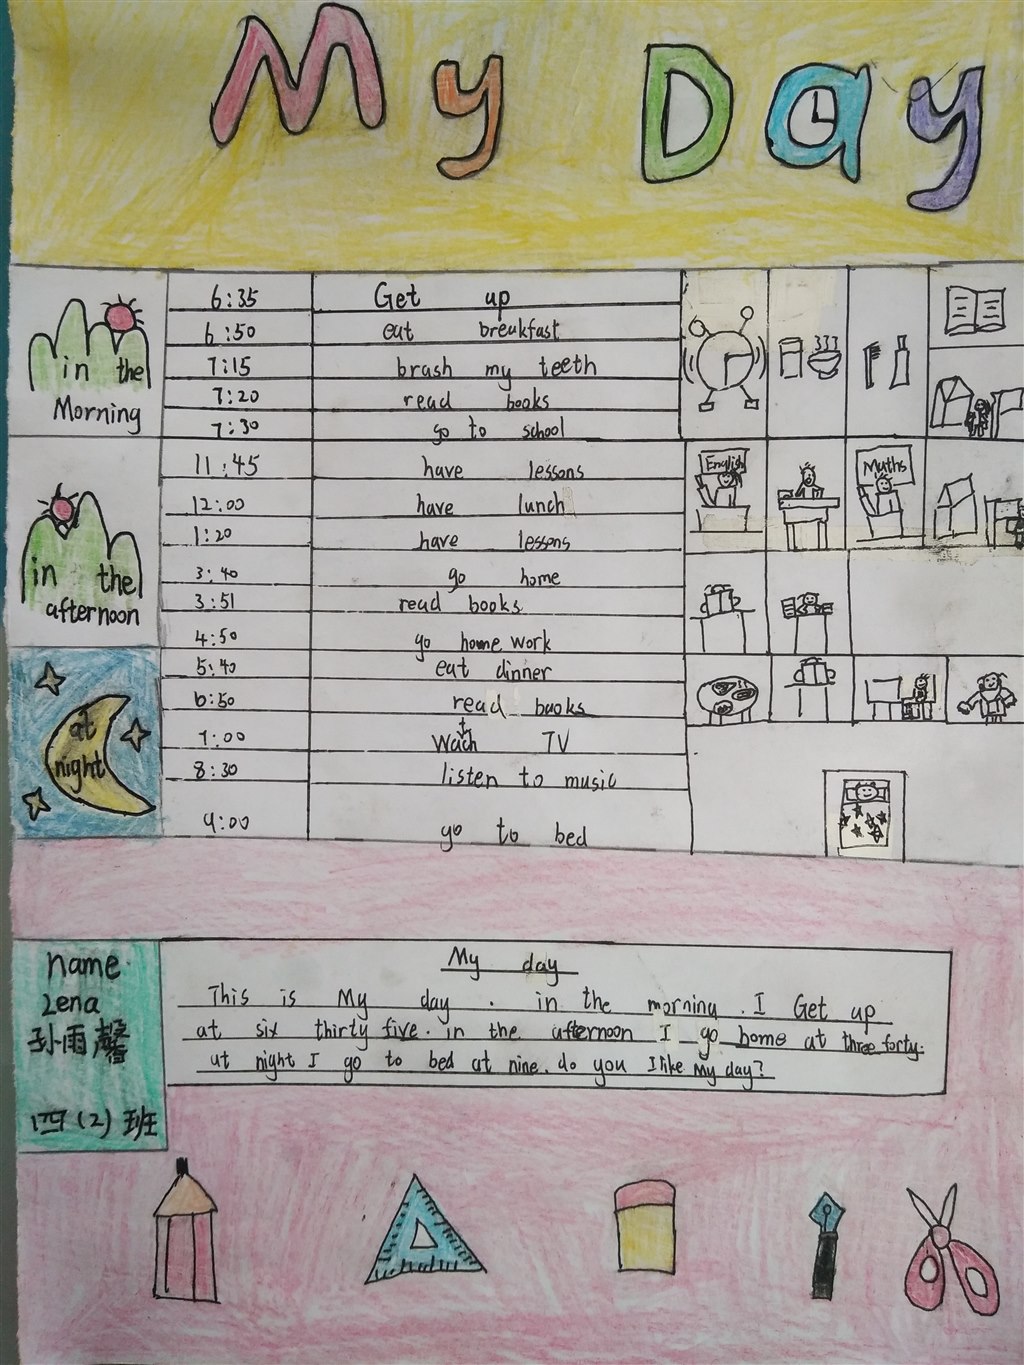 My Day
in the
Morning
6:35 Get up
6:50 eat breukfast
7:15 brash my teeth
7:20 read books
7:30 go to school
English
Maths
in the
afternoon
11:45 have lessons
12:00 have lunch
1:20 have lessons
3:40 go home
3:51 read books
4:50 go home work
at
night
5:40 eat dinner
6:50 read books
7:00 Watch TV
8:30 listen to music
9:00 go to bed
name
Lena
孙雨馨
四(2)班
My day
This is My day. in the morning. I Get up
at six thirty five. in the afternoon I go home at three forty.
at night I go to bed at nine. do you like My day?